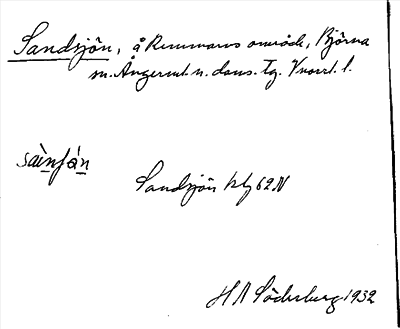 Sandsjön, å Remmarns område, Björna
sn. Ångerml. n. doms. Tg. Vnorrl. l.
sàenʃǻn
Sandsjön kbl 62 N
H A Söderberg 1932